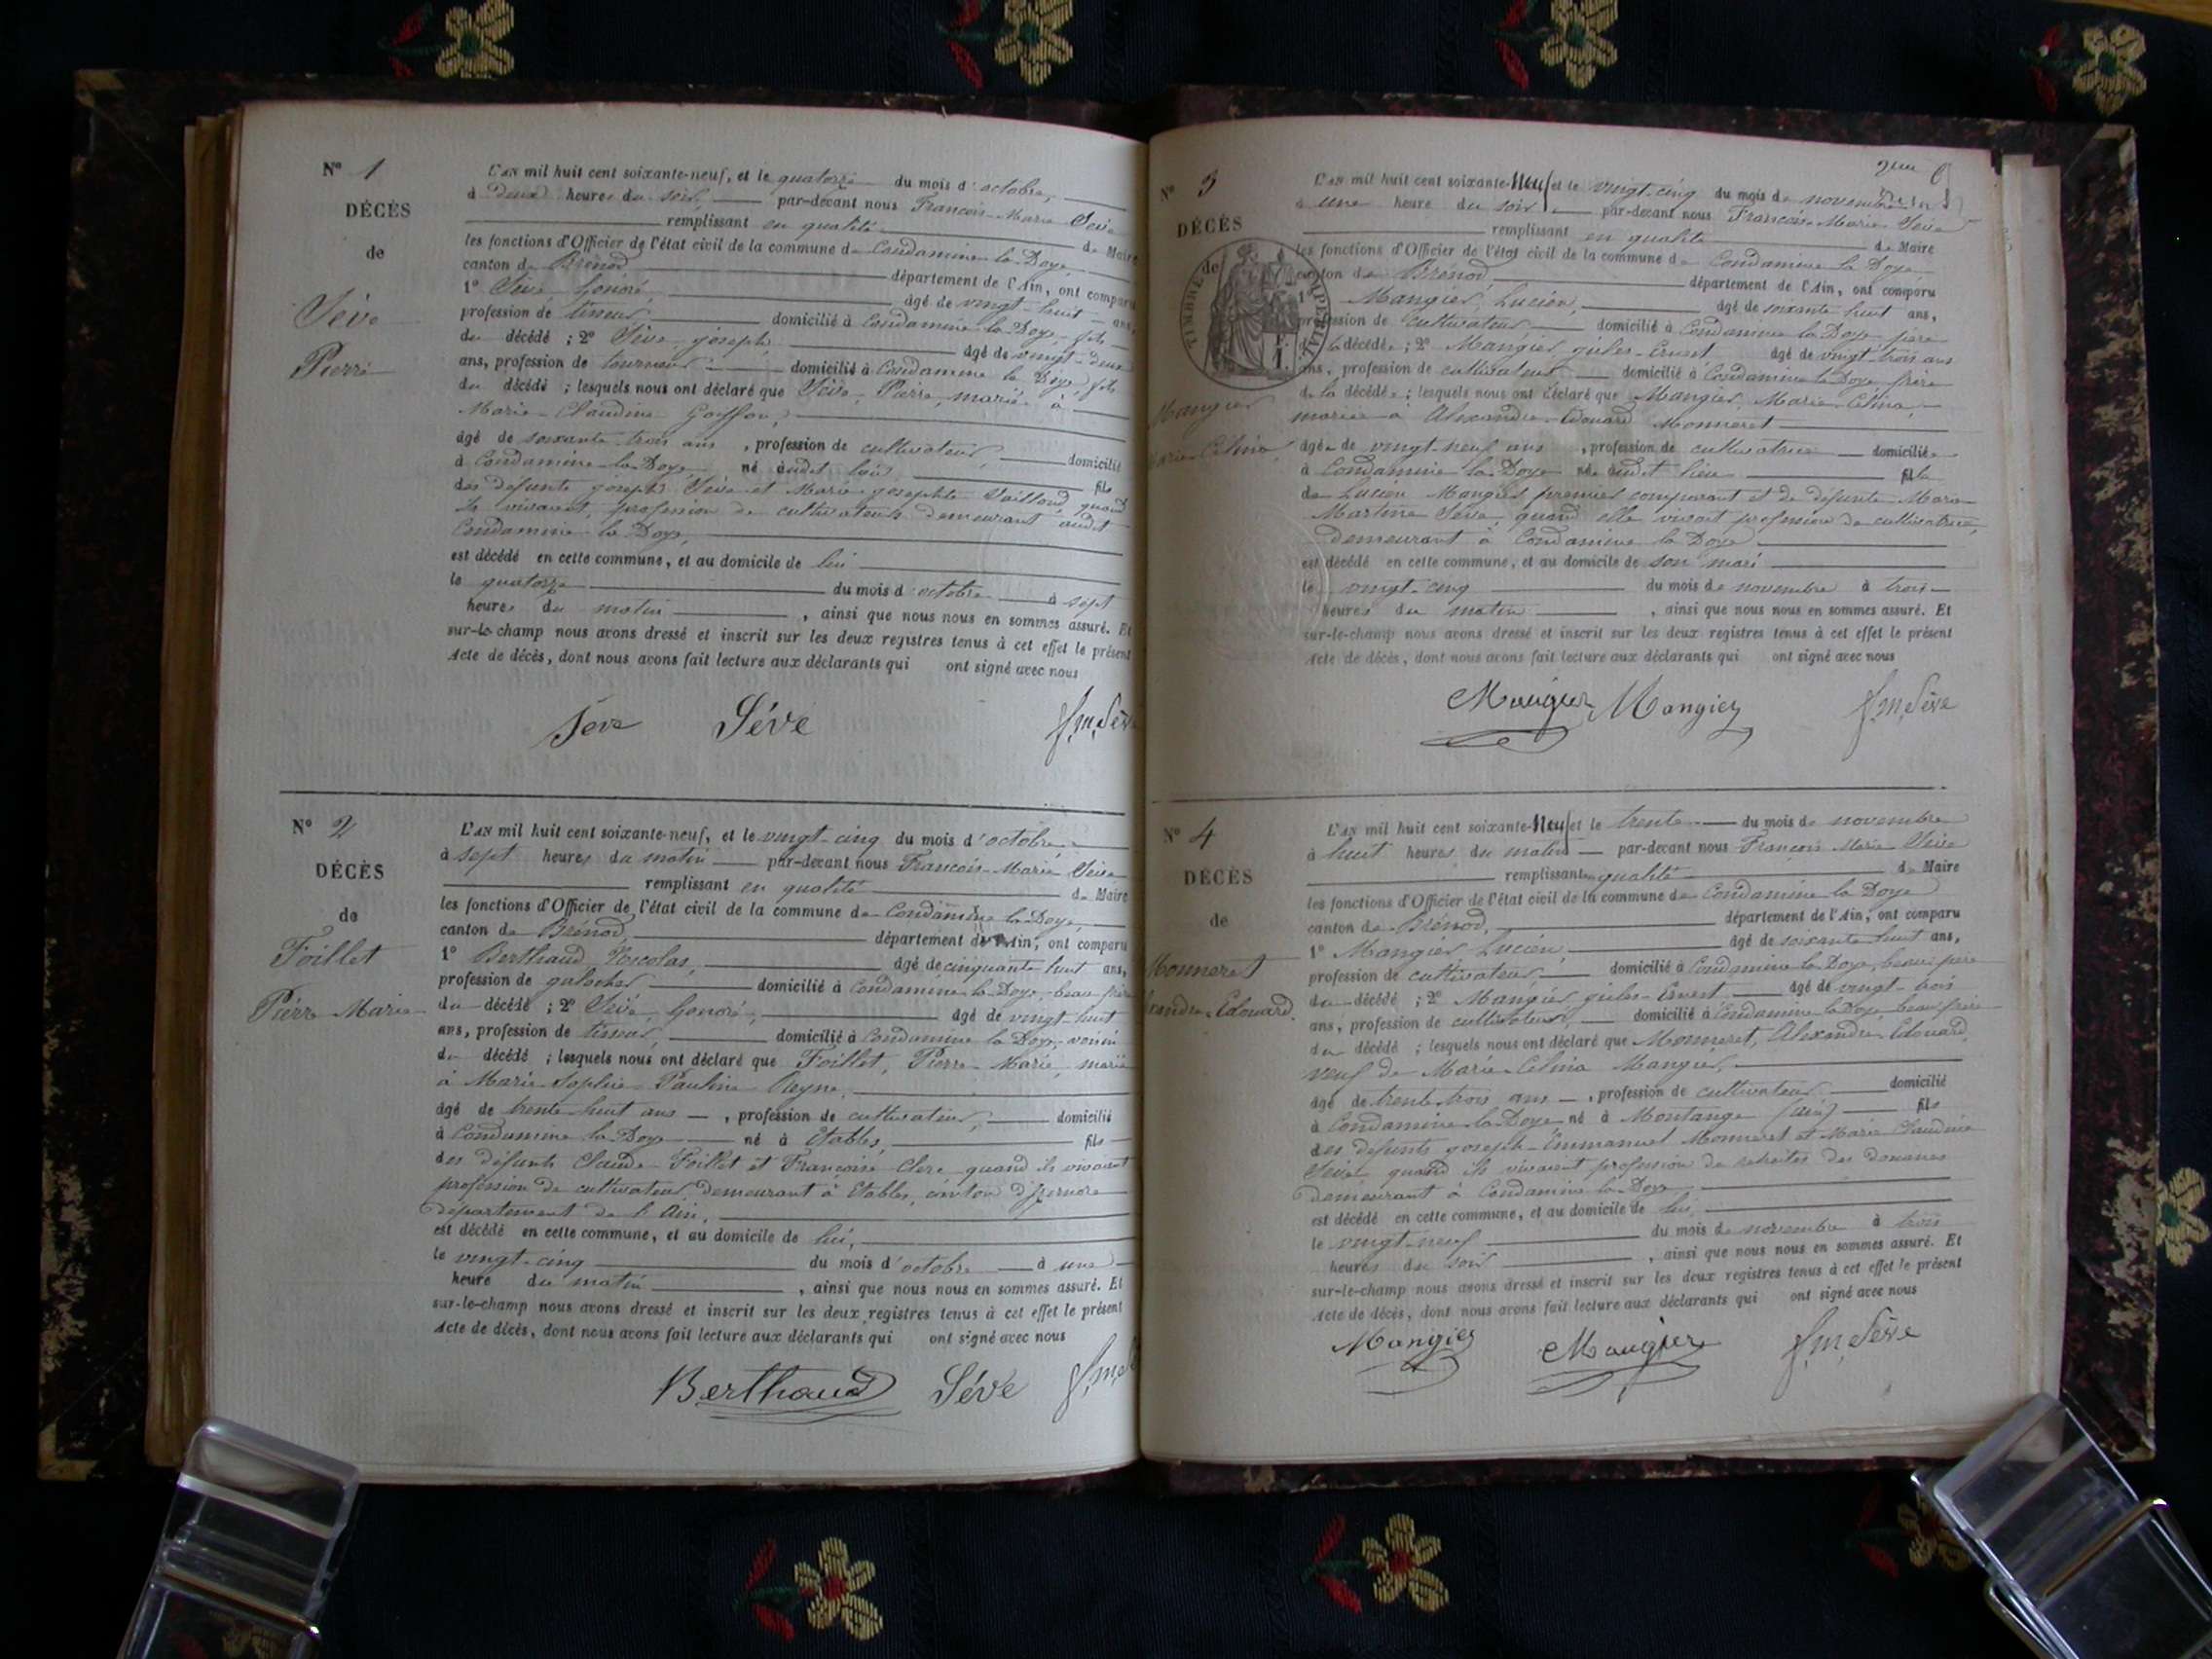 Nº 1
DÉCÈS
de
Sève
Pierre
L'AN mil huit cent soixante-neuf, et le quatorze du mois d'octobre,
à deux heures du soir, par-devant nous François-Marie Sève
remplissant en qualité de Maire
les fonctions d'Officier de l'état civil de la commune de Condamine la Doye,
canton de Brénod, département de l'Ain, ont comparu
1º Sève Honoré, âgé de vingt-huit ans,
profession de tisseur, domicilié à Condamine la Doye, fils
du décédé ; 2º Sève joseph, âgé de vingt-deux
ans, profession de tourneur domicilié à Condamine la Doye, fils
du décédé ; lesquels nous ont déclaré que Sève, Pierre, marié à
Marie-Claudine Goyffon,
âgé de soixante-trois ans, profession de cultivateur, domicilié
à Condamine la Doye né audit lieu fils
des défunts joseph Sève et Marie-josephte quand
ils vivaient, profession de cultivateurs demeurant audit
Condamine la Doye,
est décédé en cette commune, et au domicile de lui
le quatorze du mois d'octobre à sept
heures du matin, ainsi que nous nous en sommes assuré. Et
sur-le-champ nous avons dressé et inscrit sur les deux registres tenus à cet effet le présent
Acte de décès, dont nous avons fait lecture aux déclarants qui ont signé avec nous
Seve Séve f.m. Sève
Nº 2
DÉCÈS
de
Foillet
Pierre Marie
L'AN mil huit cent soixante-neuf, et le vingt-cinq du mois d'octobre
à sept heures du matin par-devant nous François-Marie Sève
remplissant en qualité de Maire
les fonctions d'Officier de l'état civil de la commune de Condamine la Doye,
canton de Brénod, département de l'Ain, ont comparu
1º Berthaud Nicolas, âgé de cinquante huit ans,
profession de galocher domicilié à Condamine la Doye, beau-père
du décédé ; 2º Sève, Honoré, âgé de vingt-huit
ans, profession de tisseur, domicilié à Condamine la Doye, voisin
du décédé ; lesquels nous ont déclaré que Foillet, Pierre-Marie, marié
à Marie-Sophie-Pauline
âgé de trente-huit ans, profession de cultivateur, domicilié
à Condamine la Doye né à Etables, fils
des défunts Claude Foillet et Françoise Clerc quand ils vivaient
profession de cultivateur, demeurant à Etables, canton d'izernore
département de l'Ain,
est décédé en cette commune, et au domicile de lui,
le vingt-cinq du mois d'octobre à une
heure du matin, ainsi que nous nous en sommes assuré. Et
sur-le-champ nous avons dressé et inscrit sur les deux registres tenus à cet effet le présent
Acte de décès, dont nous avons fait lecture aux déclarants qui ont signé avec nous
Berthaud Séve
Nº 3
DÉCÈS
de
TIMBRE IMPÉRIAL
Mangier
Marie Célina
L'AN mil huit cent soixante-Neuf et le vingt-cinq du mois de novembre
à une heure du soir par-devant nous François-Marie Sève
remplissant en qualité de Maire
les fonctions d'Officier de l'état civil de la commune de Condamine la Doye
canton de Brénod, département de l'Ain, ont comparu
1º Mangier, Lucien, âgé de soixante huit ans,
profession de cultivateur domicilié à Condamine la Doye père
de la décédée ; 2º Mangier jules-Ernest âgé de vingt-trois ans
ans, profession de cultivateur domicilié à Condamine la Doye frère
de la décédée ; lesquels nous ont déclaré que Mangier, Marie-Célina,
mariée à Alexandre-Edouard Monneret
âgée de vingt-neuf ans, profession de cultivatrice domiciliée
à Condamine la Doye née audit lieu fille
de Lucien Mangier premier comparant et de défunte Marie
Martine Sève quand elle vivait profession de cultivatrice,
demeurant à Condamine la Doye
est décédé en cette commune, et au domicile de son mari
le vingt-cinq du mois de novembre à trois
heures du matin, ainsi que nous nous en sommes assuré. Et
sur-le-champ nous avons dressé et inscrit sur les deux registres tenus à cet effet le présent
Acte de décès, dont nous avons fait lecture aux déclarants qui ont signé avec nous
Mangier Mangier f.m. Sève
Nº 4
DÉCÈS
de
Monneret
Edouard
L'AN mil huit cent soixante-Neuf et le trente du mois de novembre
à huit heures du matin par-devant nous François Marie Sève
remplissant en qualité de Maire
les fonctions d'Officier de l'état civil de la commune de Condamine la Doye
canton de Brénod, département de l'Ain, ont comparu
1º Mangier Lucien, âgé de soixante huit ans,
profession de cultivateur domicilié à Condamine la Doye, beau-père
du décédé ; 2º Mangier jules-Ernest âgé de vingt-trois
ans, profession de cultivateur, domicilié à Condamine la Doye, beau-frère
du décédé ; lesquels nous ont déclaré que Monneret, Alexandre Edouard,
veuf de Marie-Célina Mangier,
âgé de trente-trois ans, profession de cultivateur domicilié
à Condamine la Doye né à Montange (ain) fils
des défunts joseph-Emmanuel Monneret et Marie Claudine
Sève quand ils vivaient profession de retraités des douanes
demeurant à Condamine la Doye
est décédé en cette commune, et au domicile de lui,
le vingt-neuf du mois de novembre à trois
heures du soir, ainsi que nous nous en sommes assuré. Et
sur-le-champ nous avons dressé et inscrit sur les deux registres tenus à cet effet le présent
Acte de décès, dont nous avons fait lecture aux déclarants qui ont signé avec nous
Mangier Mangier f.m. Sève